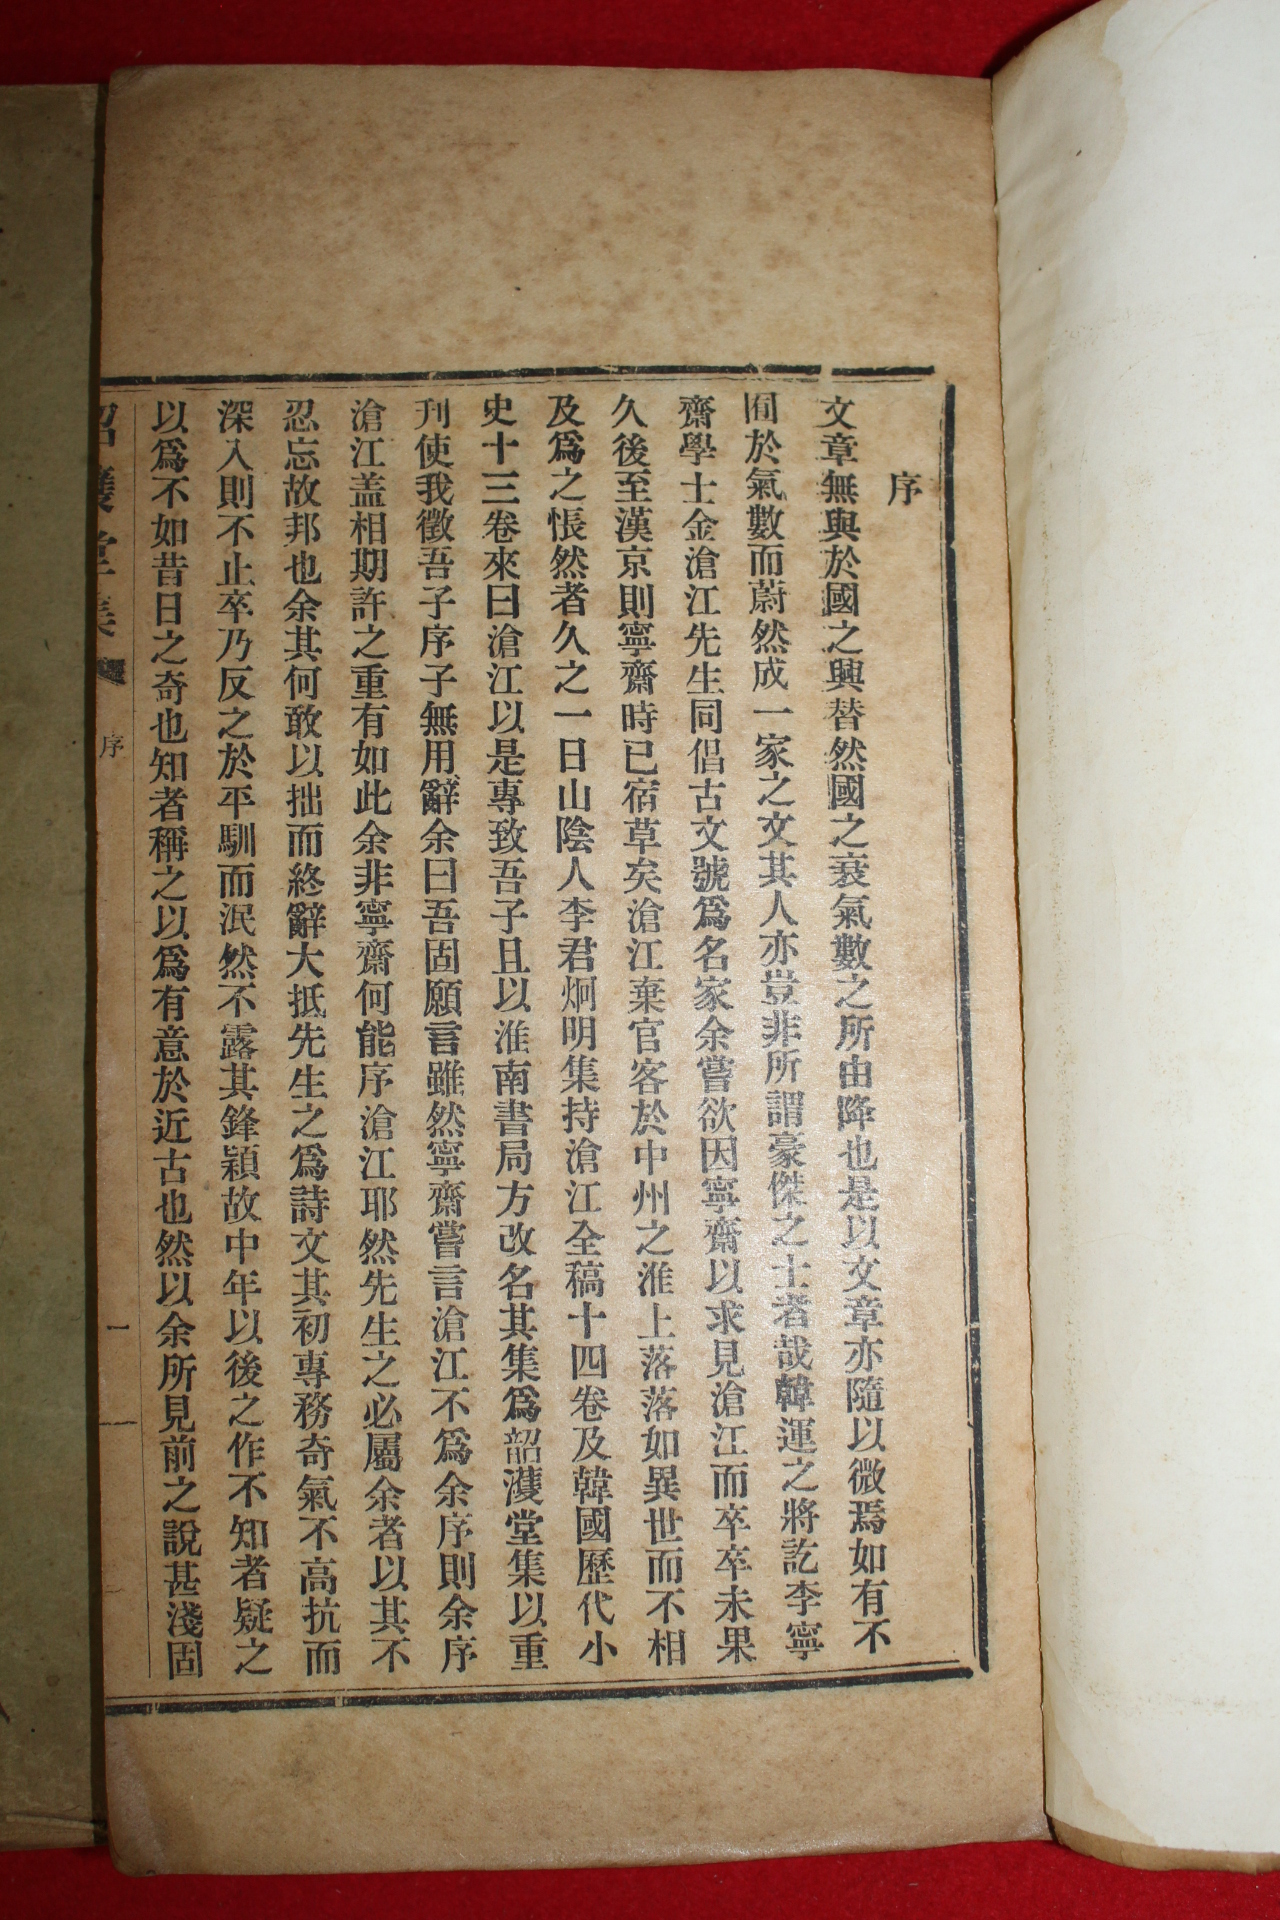 序
文章無與於國之興替然國之衰氣數之所由降也是以文章亦隨以微焉如有不
囿於氣數而蔚然成一家之文其人亦豈非所謂豪傑之士者哉韓運之將訖李寧
齋學士金滄江先生同倡古文號爲名家余嘗欲因寧齋以求見滄江而卒卒未果
久後至漢京則寧齋時已宿草矣滄江棄官客於中州之淮上落落如異世而不相
及爲之悵然者久之一日山陰人李君炯明集持滄江全稿十四卷及韓國歷代小
史十三卷來曰滄江以是專致吾子且以淮南書局方改名其集爲韶濩堂集以重
刋使我徵吾子序子無用辭余曰吾固願言雖然寧齋嘗言滄江不爲余序則余序
滄江盖相期許之重有如此余非寧齋何能序滄江耶然先生之必屬余者以其不
忍忘故邦也余其何敢以拙而終辭大抵先生之爲詩文其初專務奇氣不高抗而
深入則不止卒乃反之於平馴而泯然不露其鋒穎故中年以後之作不知者疑之
以爲不如昔日之奇也知者稱之以爲有意於近古也然以余所見前之說甚淺固
韶濩堂集 序 一